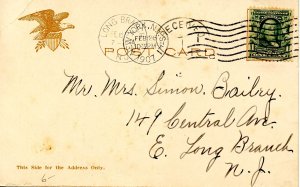 LONG BRANCH
FEB 26
1907
RECEIVED
POST CARD
Mr. Mrs. Simon Bailey.
149 Central Ave.
E. Long Branch
N. J.
This Side for the Address Only.